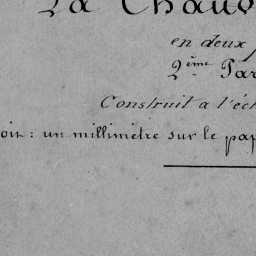 La Chaud
en deux
2ème Par
Construit a l'éch
oir: un millimètre sur le pap